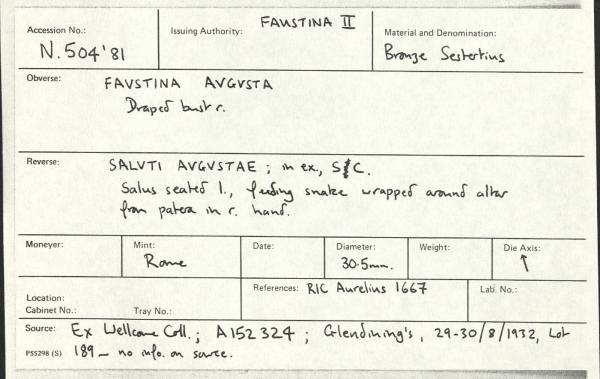 Accession No.: N.504'81
Issuing Authority: FAUSTINA II
Material and Denomination: Bronze Sestertius
Obverse: FAVSTINA AVGVSTA
Draped bust r.
Reverse: SALVTI AVGVSTAE ; in ex., S C.
Salus seated l., feeding snake wrapped around altar
from patera in r. hand.
Moneyer:
Mint: Rome
Date:
Diameter: 30.5mm.
Weight:
Die Axis: ↑
Location:
Cabinet No.: Tray No.:
References: RIC Aurelius 1667
Lab. No.:
Source: Ex Wellcome Coll.; A152324 ; Glendining's, 29-30/8/1932, Lot
PS5298 (S) 189 — no info. on source.